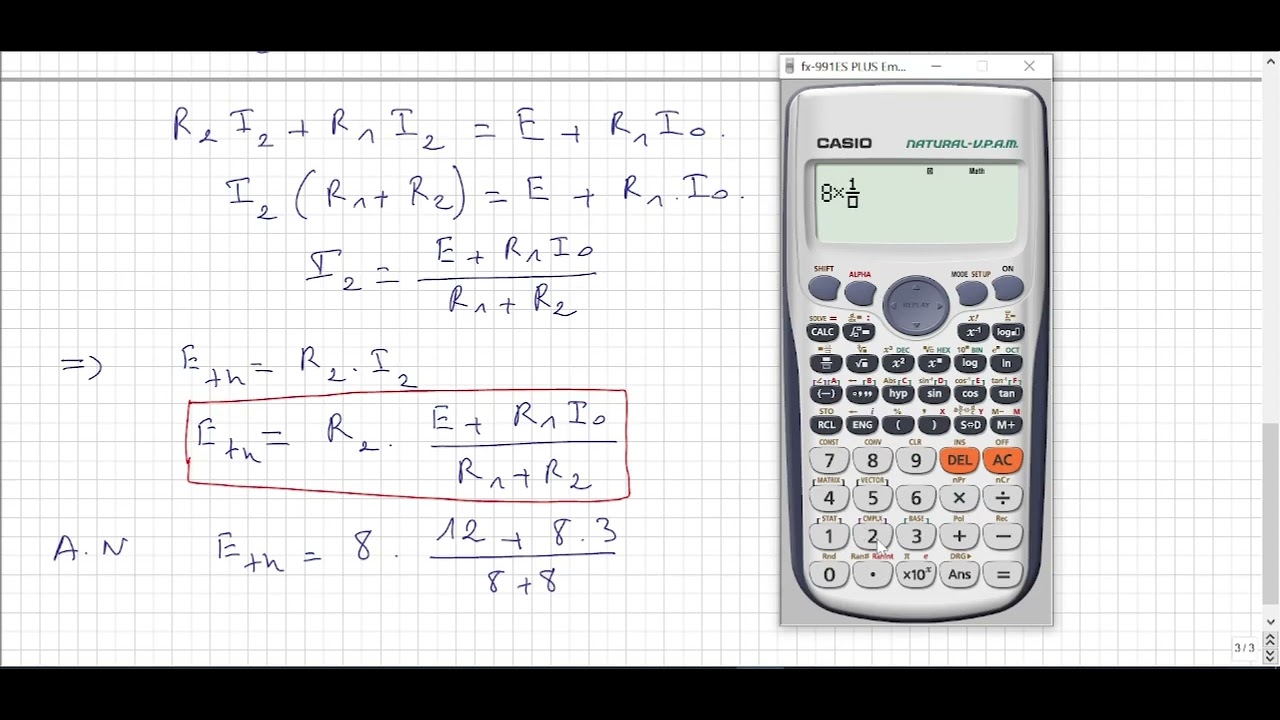 R₂ I₂ + R₁ I₂ = E + R₁ I₀.
I₂ (R₁ + R₂) = E + R₁ . I₀.
I₂ = (E + R₁ I₀) / (R₁ + R₂)
=> Eₜₕ = R₂ . I₂
Eₜₕ = R₂ . (E + R₁ I₀) / (R₁ + R₂)
A.N Eₜₕ = 8 . (12 + 8 . 3) / (8 + 8)
fx-991ES PLUS Em...
CASIO NATURAL-V.P.A.M.
Math
8×1/□
SHIFT ALPHA MODE SETUP ON
REPLAY
SOLVE = x!
CALC x⁻¹ log
DEC HEX 10ˣ BIN eˣ OCT
x² log ln
A B Abs C sin⁻¹ D cos⁻¹ E tan⁻¹ F
(−) hyp sin cos tan
STO ← i % , X Y M− M
RCL ENG ( ) S⇔D M+
CONST CONV CLR INS OFF
7 8 9 DEL AC
MATRIX VECTOR nPr nCr
4 5 6 × ÷
STAT CMPLX BASE Pol Rec
1 2 3 + −
Rnd Ran# RanInt π e DRG▶
0 . ×10ˣ Ans =
3 / 3